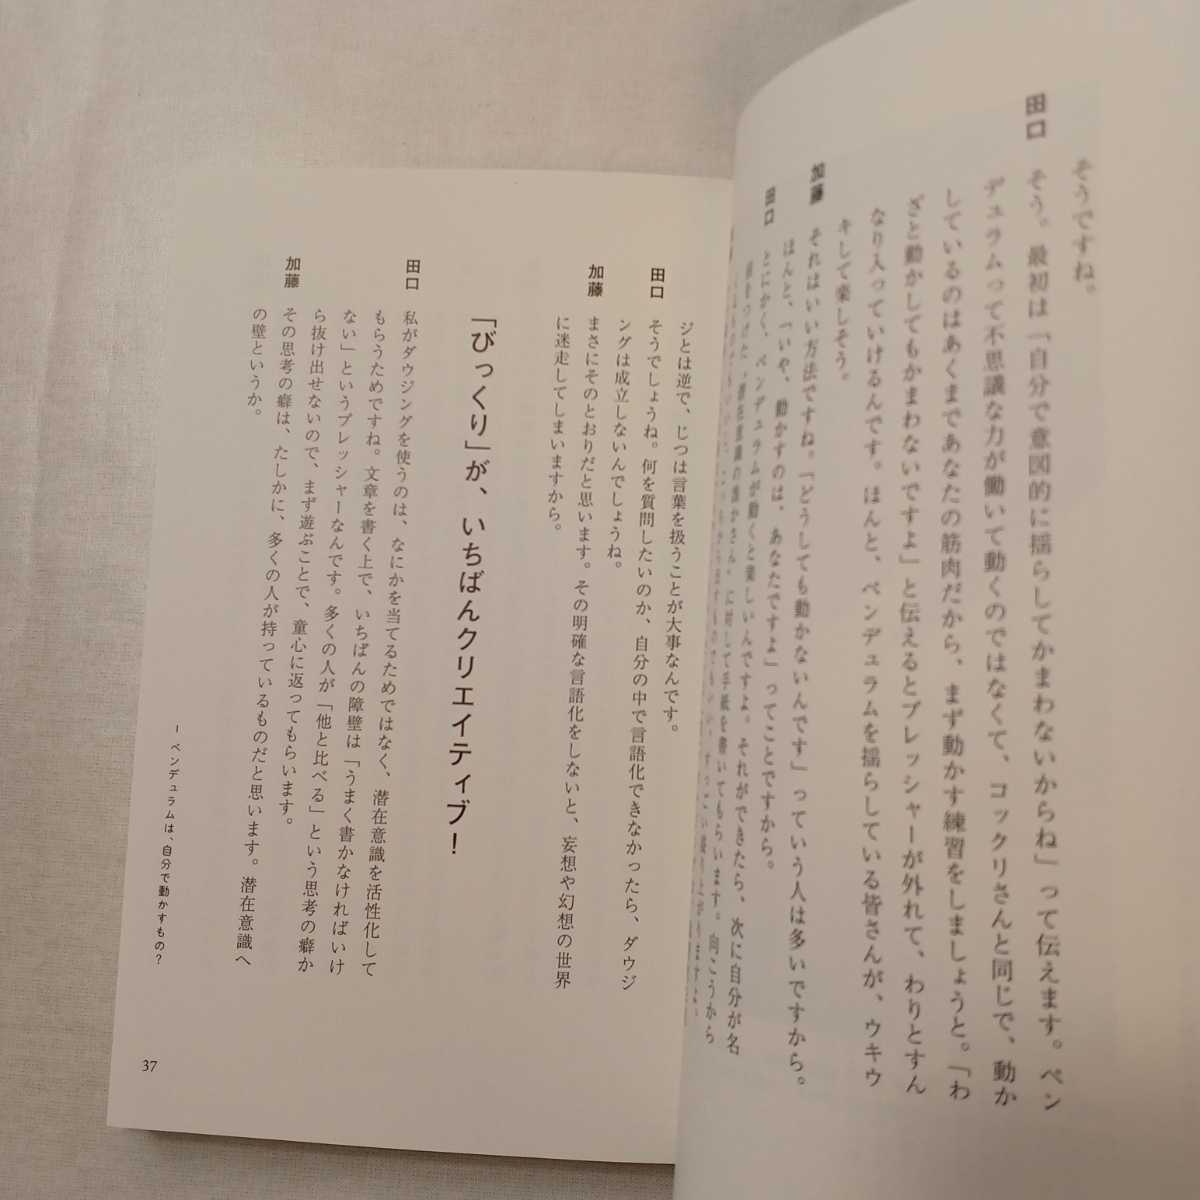 そうですね。
田口 そう。最初は「自分で意図的に揺らしてかまわないからね」って伝えます。ペン
デュラムって不思議な力が働いて動くのではなくて、コックリさんと同じで、動か
しているのはあくまであなたの筋肉だから、まず動かす練習をしましょうと。「わ
ざと動かしてもかまわないですよ」と伝えるとプレッシャーが外れて、わりとすん
なり入っていけるんです。ほんと、ペンデュラムを揺らしている皆さんが、ウキウ
キして楽しそう。
加藤 それはいい方法ですね。「どうしても動かないんです」っていう人は多いですから。
ほんと、「いや、動かすのは、あなたですよ」ってことですから。
田口 とにかく、ペンデュラムが動くと楽しいんですよ。それができたら、次に自分が名
前をつけた“潜在意識の誰かさん”に対して手紙を書いてもらいます。向こうから
ジとは逆で、じつは言葉を扱うことが大事なんです。
田口 そうでしょうね。何を質問したいのか、自分の中で言語化できなかったら、ダウジ
ングは成立しないんでしょうね。
加藤 まさにそのとおりだと思います。その明確な言語化をしないと、妄想や幻想の世界
に迷走してしまいますから。
「びっくり」が、いちばんクリエイティブ！
田口 私がダウジングを使うのは、なにかを当てるためではなく、潜在意識を活性化して
もらうためですね。文章を書く上で、いちばんの障壁は「うまく書かなければいけ
ない」というプレッシャーなんです。多くの人が「他と比べる」という思考の癖か
ら抜け出せないので、まず遊ぶことで、童心に返ってもらいます。
加藤 その思考の癖は、たしかに、多くの人が持っているものだと思います。潜在意識へ
の壁というか。
I ペンデュラムは、自分で動かすもの？
37